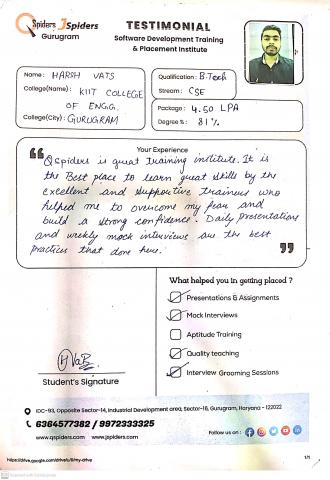 QSpiders JSpiders
Gurugram
TESTIMONIAL
Software Development Training
& Placement Institute
Name : HARSH VATS
College(Name) : KIIT COLLEGE
OF ENGG.
College(City) : GURUGRAM
Qualification : B.Tech
Stream : CSE
Package : 4.50 LPA
Degree % : 81%
Your Experience
Qspiders is great training institute. It is
the Best place to learn great skills by the
excellent and supportive trainers who
helped me to overcome my fear and
build a strong confidence. Daily presentations
and weekly mock interviews are the best
practices that done here.
What helped you in getting placed ?
Presentations & Assignments
Mock Interviews
Aptitude Training
Quality teaching
Interview Grooming Sessions
Student's Signature
IDC-93, Opposite Sector-14, Industrial Development area, Sector-16, Gurugram, Haryana - 122022
6364577382 / 9972333325
www.qspiders.com www.jspiders.com
Follow us on :
https://drive.google.com/drive/u/0/my-drive
1/1